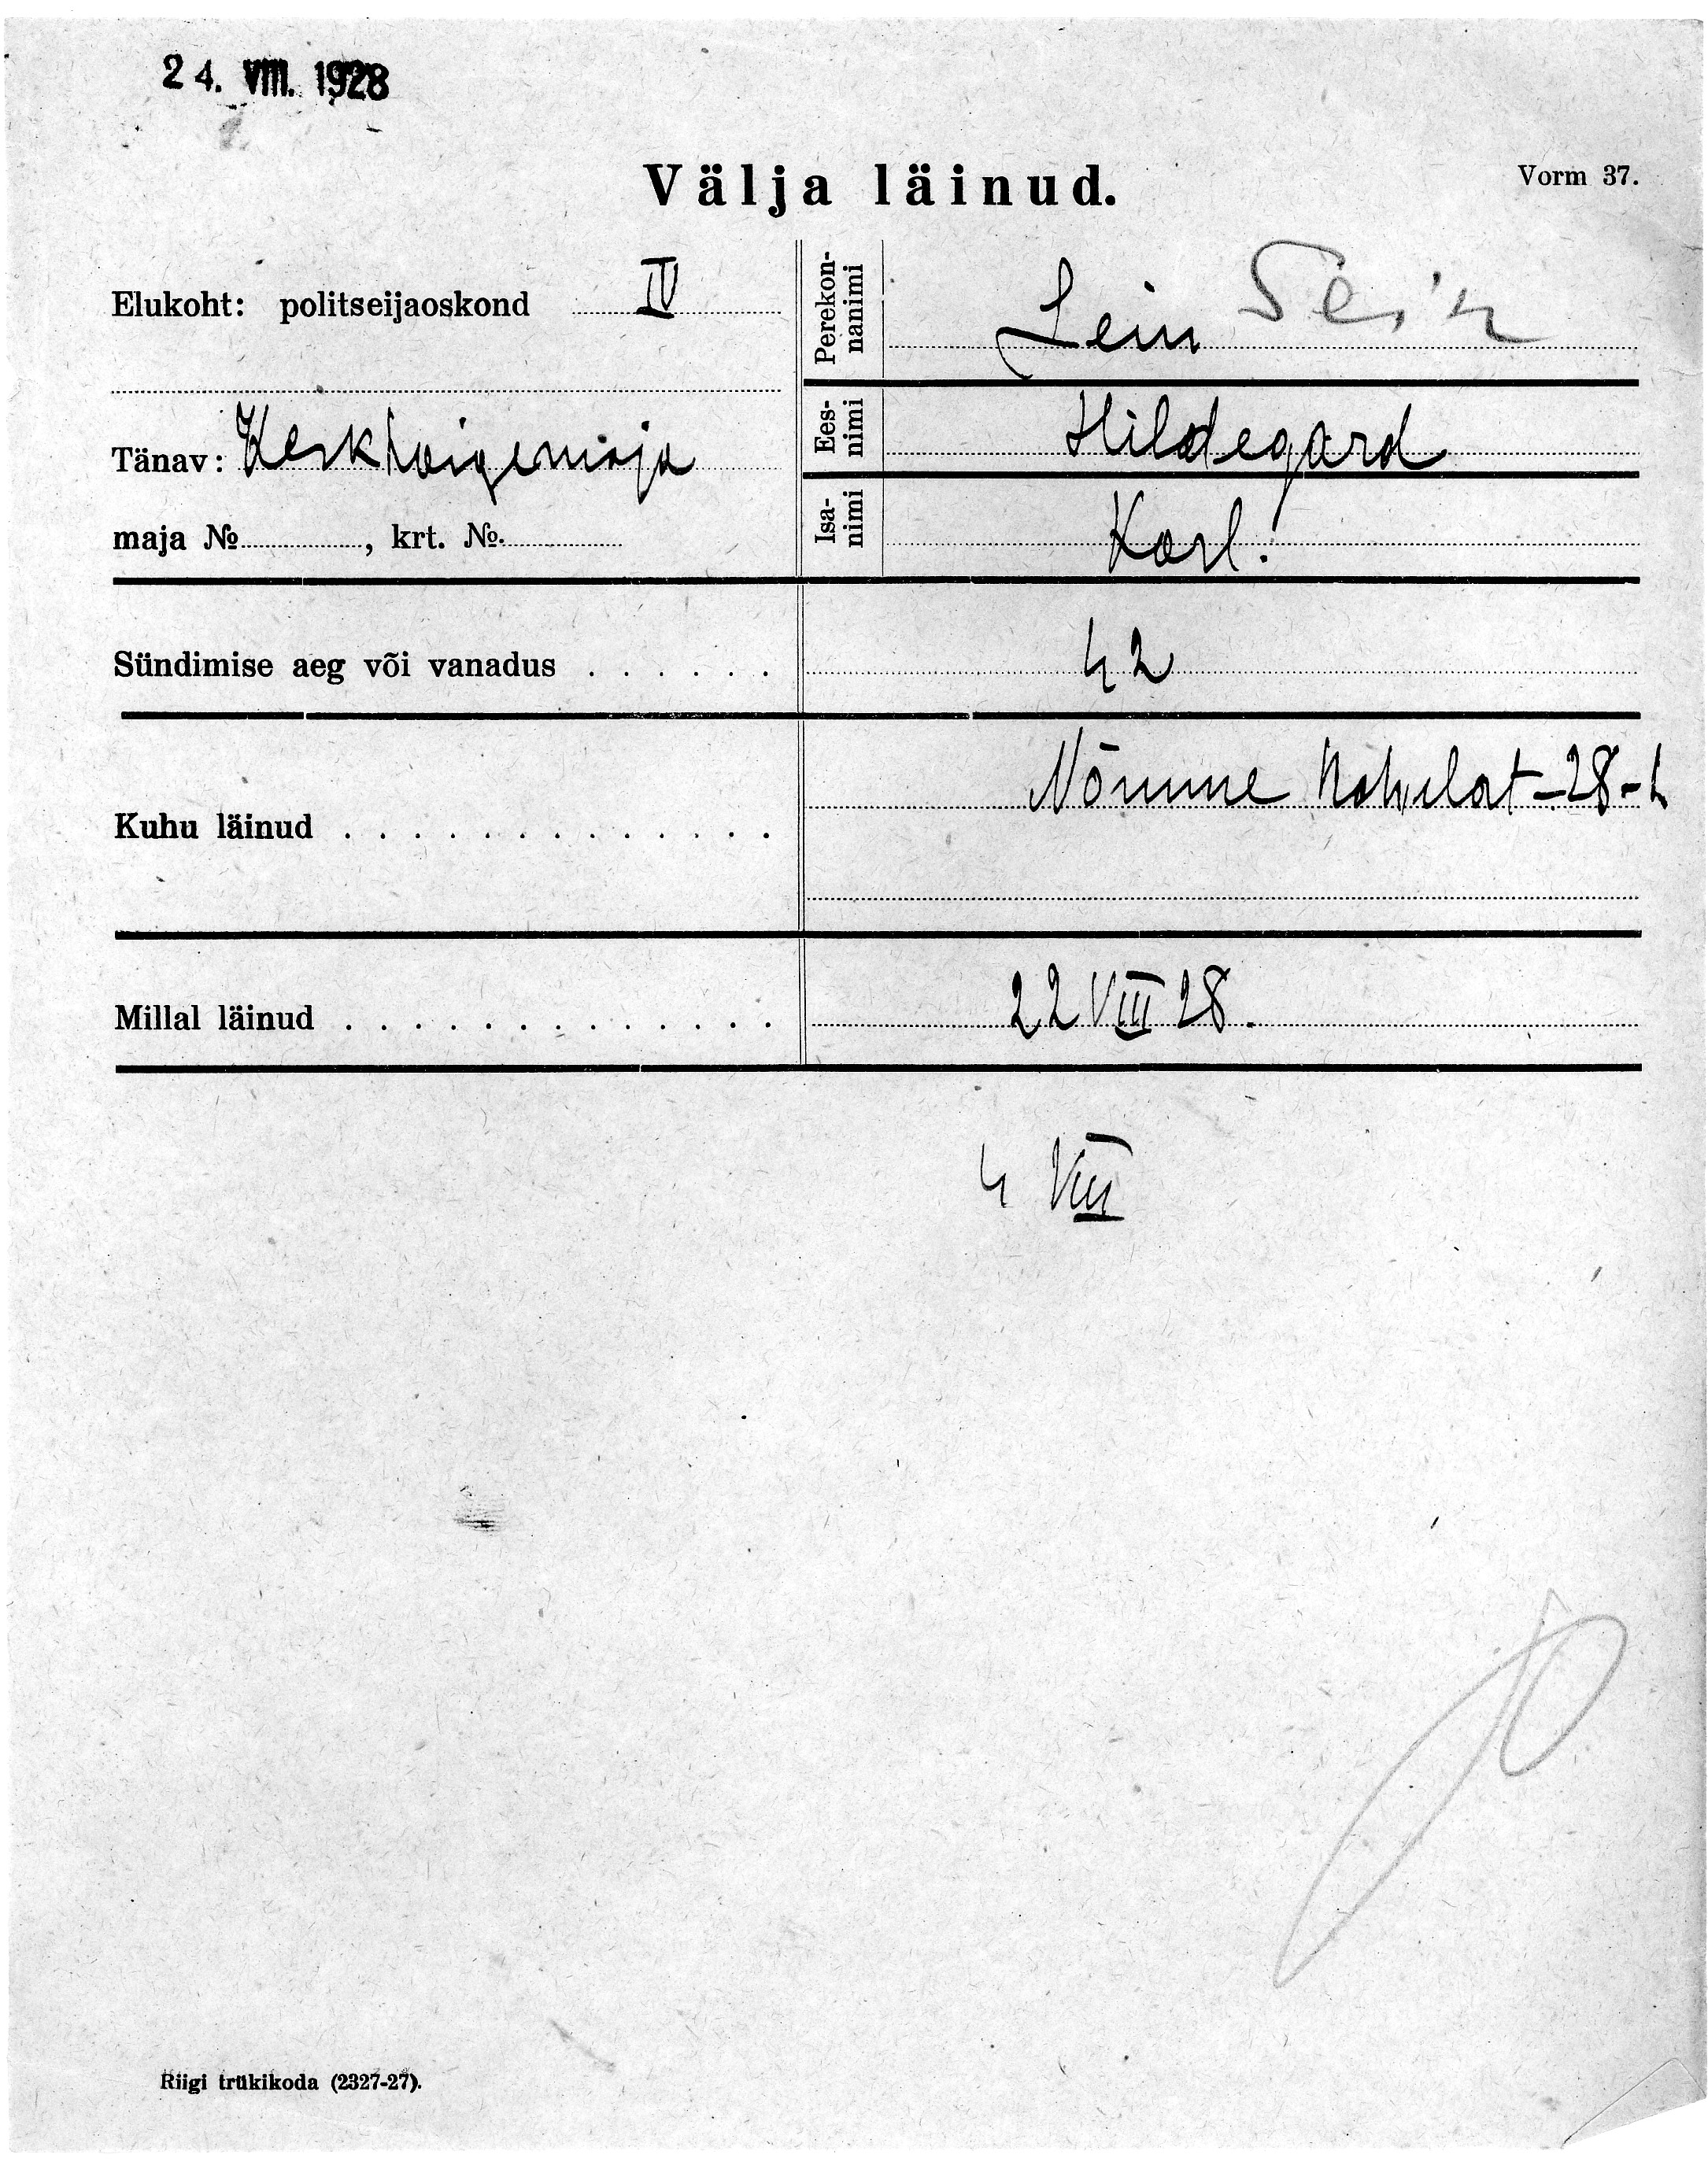 24. VIII. 1928
Välja läinud.
Vorm 37.
Elukoht: politseijaoskond IV
Perekon-
nanimi
Lein Sein
Tänav: Keskhaigemaja
Ees-
nimi
Hildegard
maja № , krt. №.
Isa-
nimi
Karl.
Sündimise aeg või vanadus . . . . . . 42
Kuhu läinud . . . . . . . . . . . . . Nõmme 28-
Millal läinud . . . . . . . . . . . . . 22 VIII 28.
4 VIII
Riigi trükikoda (2327-27).